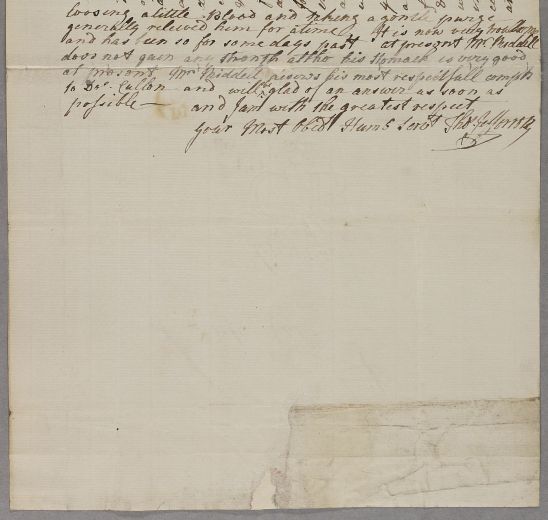 loosing a little Blood and taking a gentle purge
generally relieved him for a time. It is now very troublesome
and has been so for some days past at present Mr. Riddell
does not gain any strength altho his stomack is very good
at present. Mr. Riddell presents his most respectfull compts
to Dr. Cullen and will be glad of an answer as soon as
possible— and I am with the greatest respect
Your Most Obedt. Humb Servt. Thos.